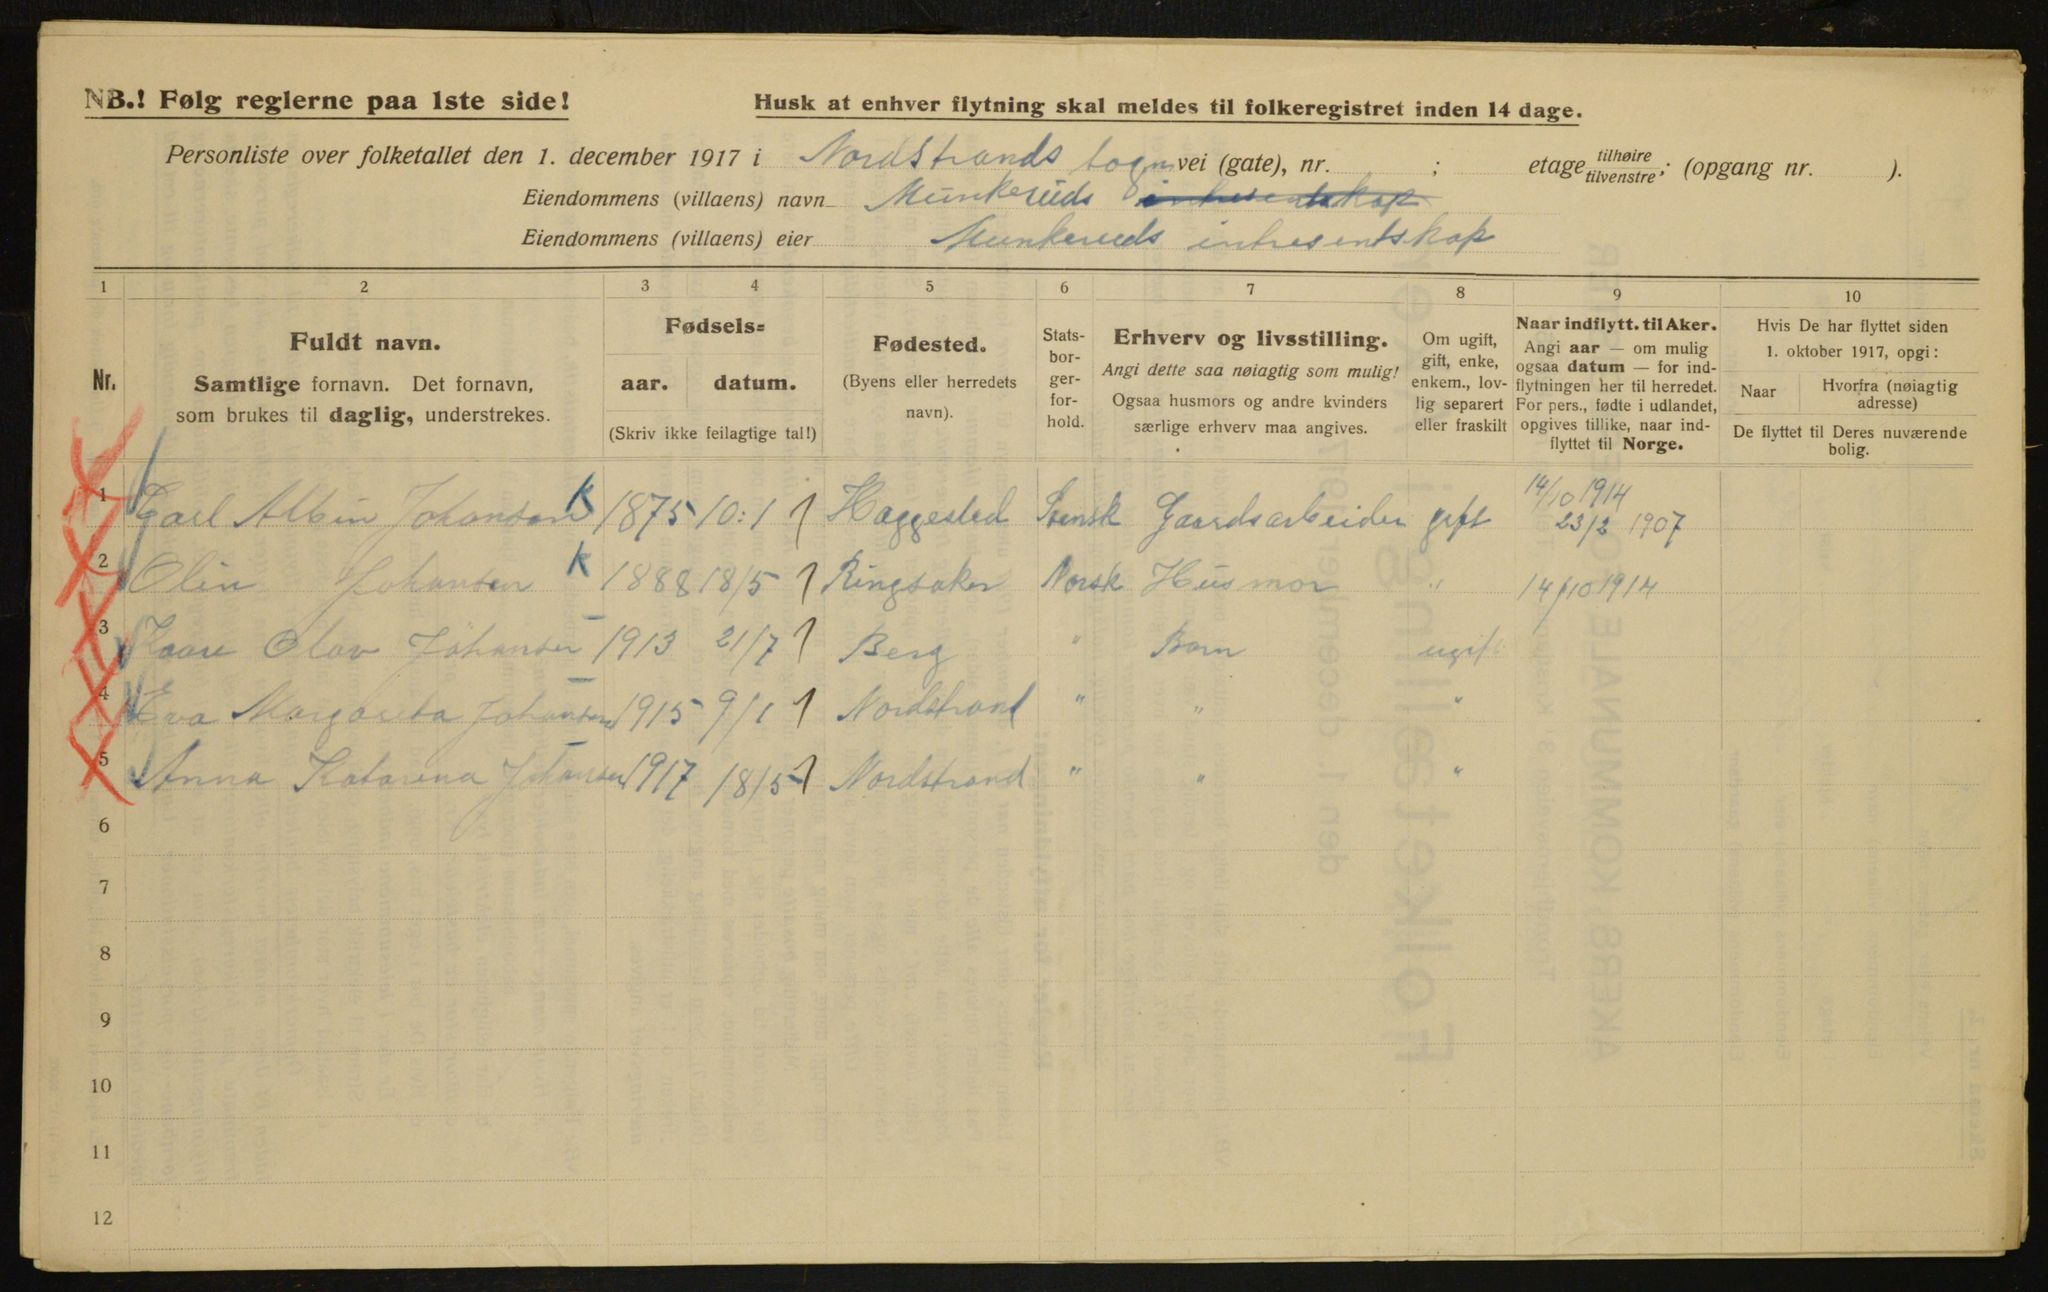 NB.! Følg reglerne paa 1ste side!
Husk at enhver flytning skal meldes til folkeregistret inden 14 dage.
Personliste over folketallet den 1. december 1917 i Nordstrands vei (gate), nr. ; etage tilhøire tilvenstre; (opgang nr. ).
Eiendommens (villaens) navn Munkeruds intresentskap
Eiendommens (villaens) eier Munkeruds intresentskap
1 2 3 4 5 6 7 8 9 10
Nr.
Fuldt navn.
Samtlige fornavn. Det fornavn,
som brukes til daglig, understrekes.
Fødsels=
aar. datum.
(Skriv ikke feilagtige tal!)
Fødested.
(Byens eller herredets
navn).
Stats-
bor-
ger-
for-
hold.
Erhverv og livsstilling.
Angi dette saa nøiagtig som mulig!
Ogsaa husmors og andre kvinders
særlige erhverv maa angives.
Om ugift,
gift, enke,
enkem., lov-
lig separert
eller fraskilt
Naar indflytt. til Aker.
Angi aar — om mulig
ogsaa datum — for ind-
flytningen her til herredet.
For pers., fødte i udlandet,
opgives tillike, naar ind-
flyttet til Norge.
Hvis De har flyttet siden
1. oktober 1917, opgi:
Naar
Hvorfra (nøiagtig
adresse)
De flyttet til Deres nuværende
bolig.
14/10 1914
1 Carl Albin Johanson K 1875 10:1 Haggested Svensk Gaardsarbeider gift 23/2 1907
2 Olin Johansen K 1888 18/5 Ringsaker Norsk Husmor " 14/10 1914
3 Kaare Olav Johansen 1913 21/7 Berg " Barn ugift
4 Eva Margareta Johansen 1915 9/1 Nordstrand " " "
5 Anna Katarina Johansen 1917 18/5 Nordstrand " " "
6
7
8
9
10
11
12